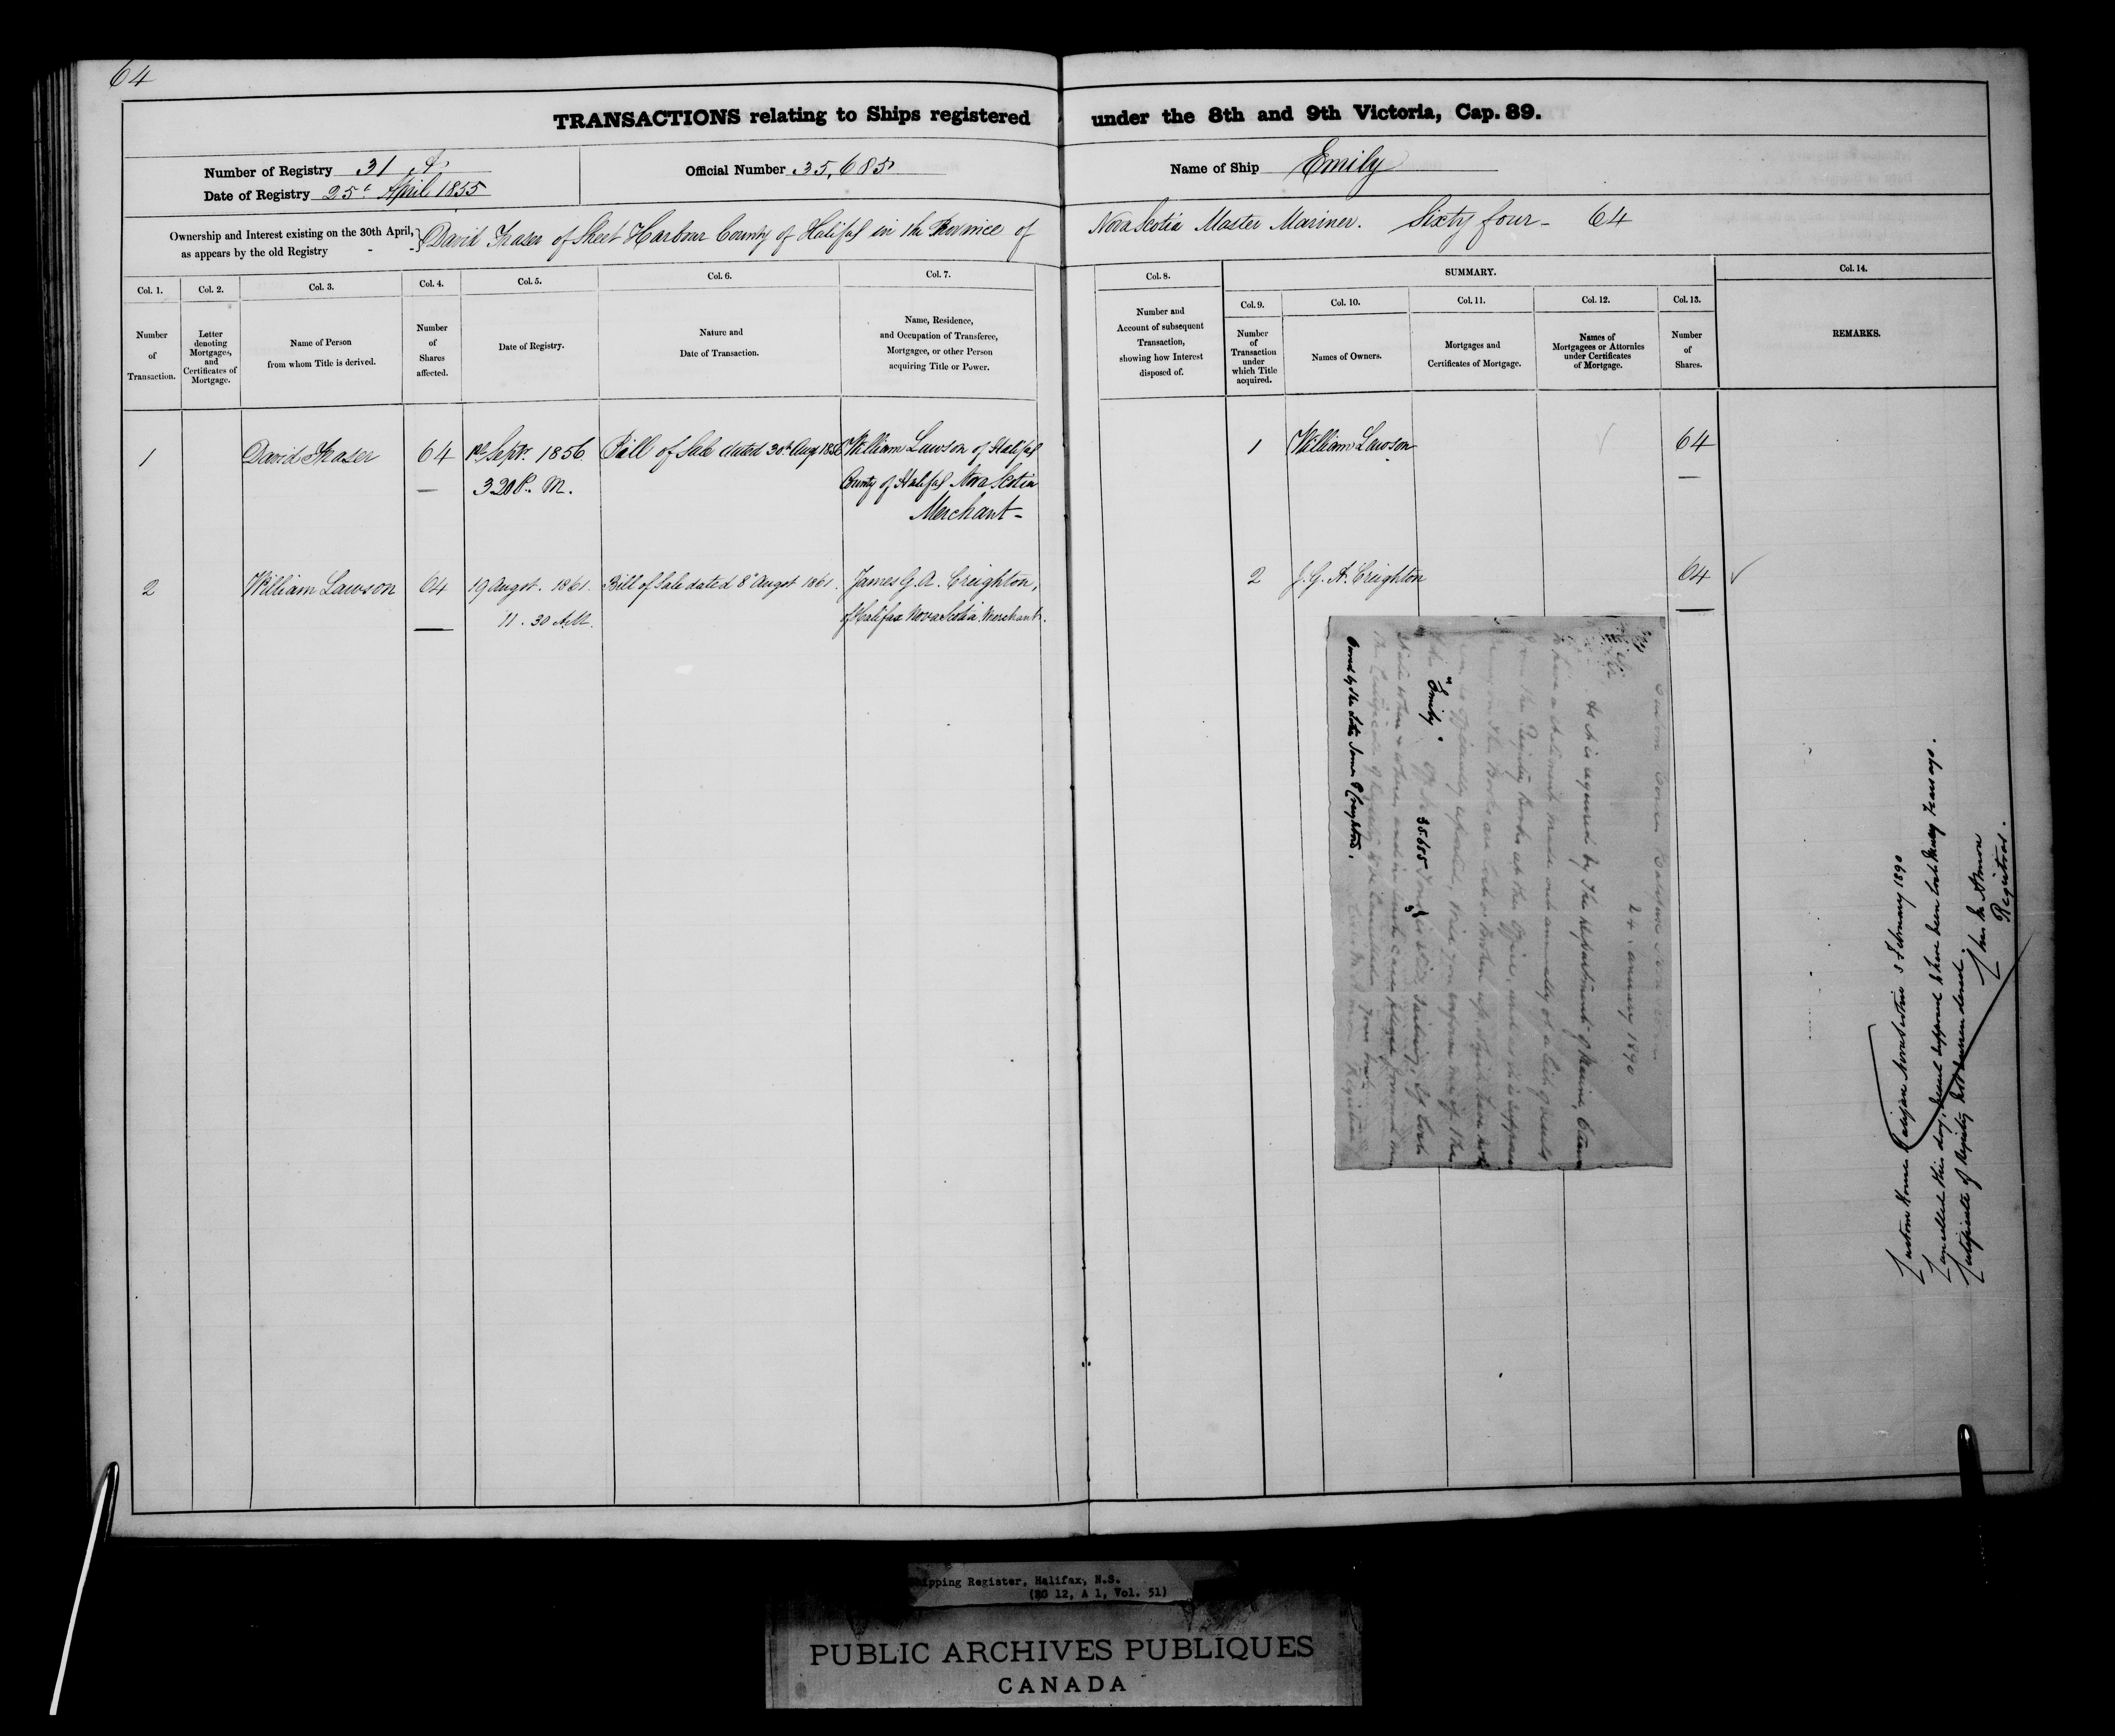 64
TRANSACTIONS relating to Ships registered under the 8th and 9th Victoria, Cap. 89.
Number of Registry 31
Date of Registry 25 April 1855
Official Number 35,685
Name of Ship Emily
Ownership and Interest existing on the 30th April,
as appears by the old Registry - -
David Fraser of Sheet Harbour County of Halifax in the Province of Nova Scotia Master Mariner. Sixty four - 64
Col. 1.
Number
of
Transaction.
Col. 2.
Letter
denoting
Mortgages,
and
Certificates of
Mortgage.
Col. 3.
Name of Person
from whom Title is derived.
Col. 4.
Number
of
Shares
affected.
Col. 5.
Date of Registry.
Col. 6.
Nature and
Date of Transaction.
Col. 7.
Name, Residence,
and Occupation of Transferee,
Mortgagee, or other Person
acquiring Title or Power.
Col. 8.
Number and
Account of subsequent
Transaction,
showing how Interest
disposed of.
SUMMARY.
Col. 9.
Number
of
Transaction
under
which Title
acquired.
Col. 10.
Names of Owners.
Col. 11.
Mortgages and
Certificates of Mortgage.
Col. 12.
Names of
Mortgagees or Attornies
under Certificates
of Mortgage.
Col. 13.
Number
of
Shares.
Col. 14.
REMARKS.
1 David Fraser 64 1st Septr. 1856 Bill of Sale dated 30th Aug 1856 William Lawson of Halifax
3.20 P. M. County of Halifax Nova Scotia
Merchant -
1 William Lawson 64
2 William Lawson 64 19 Augst. 1861. Bill of Sale dated 8 Augst 1861. James G. A. Creighton,
11. 30 A.M. of Halifax Nova Scotia Merchant.
2 J. G. A. Creighton 64
Custom House
24 January 1890
As it is required by the department of Marine,
to have a statement made out annually of a list of vessels
from the Registry Books at this Office, and as it is
"Emily" Off No 35.685
Owned by the late James Creighton.
Registrar
Custom House Halifax Nova Scotia 3 February 1890
Cancelled this day, vessel supposed to have been lost many years ago.
Certificate of Registry not surrendered.
Almon
Registrar.
Shipping Register, Halifax, N.S.
(RG 12, A 1, Vol. 51)
PUBLIC ARCHIVES PUBLIQUES
CANADA